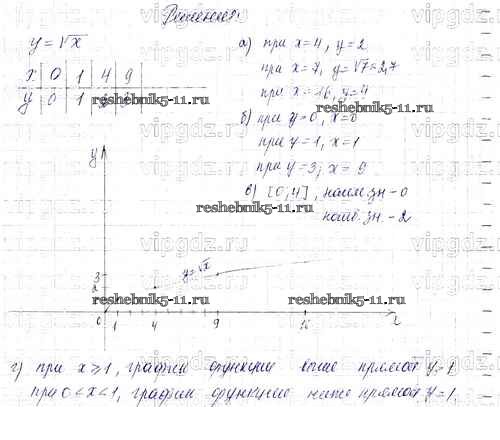 Решение.
y = √x
x | 0 | 1 | 4 | 9
y | 0 | 1
reshebnik5-11.ru
а) при x=4, y=2
при x=7, y=√7=2,7
при x=16, y=4
б) при y=0, x=0
при y=1, x=1
при y=3, x=9
в) [0;4], наим. зн - 0
наиб. зн. - 2
reshebnik5-11.ru
vipgdz.ru
y
3
2
y=√x
reshebnik5-11.ru
0 1 4 9 16 x
г) при x ⩾ 1, график функции выше прямой y=1
при 0 < x < 1, график функции ниже прямой y=1
reshebnik5-11.ru